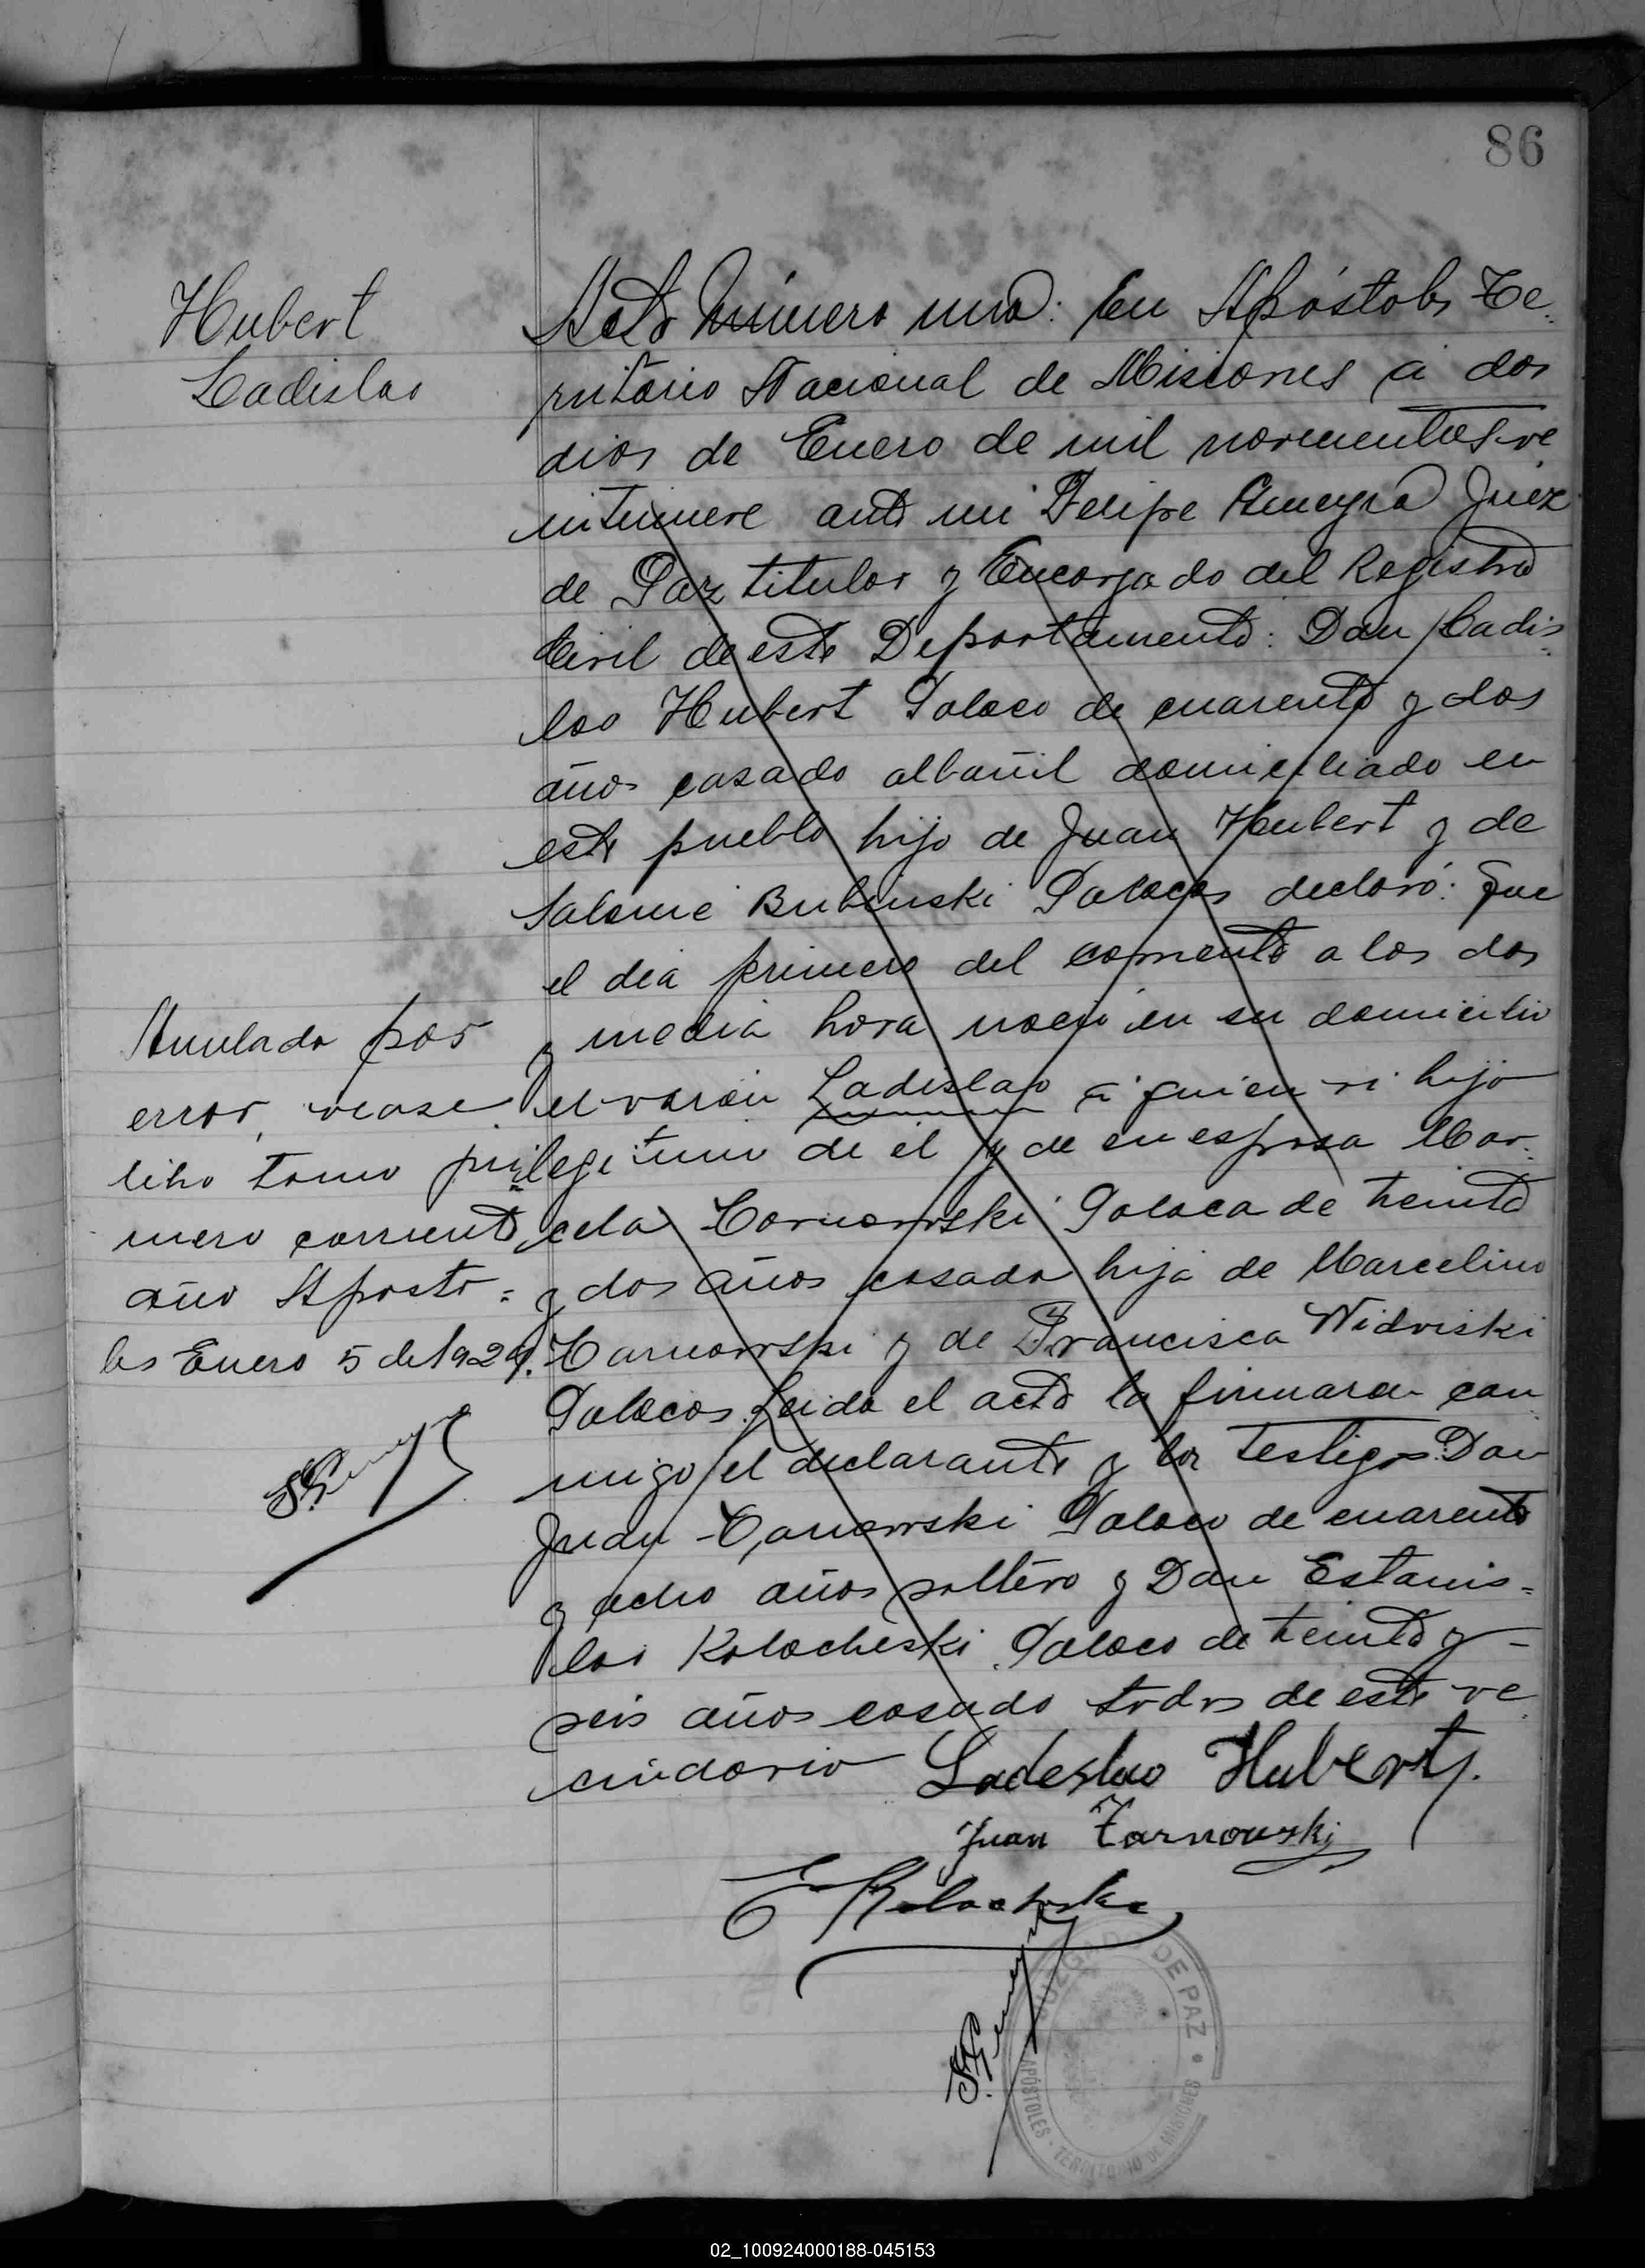 86
Hubert
Ladislao
Acta Número una: En Apóstoles Te-
rritorio Nacional de Misiones á dos
dias de Enero de mil novecientos ve
intinueve ante mi Felipe Juez
de Paz titular y Encargado del Registro
Civil de este Departamento: Don Ladis
lao Hubert Polaco de cuarenta y dos
años casado albañil domiciliado en
este pueblo hijo de Juan Hubert y de
Salomé Bubinski Polacos declaró: Que
el dia primero del corriente a las dos
y media hora nació en su domicilio
el varón Ladislao á quien vi hijo
legitimo de él y de su esposa Mar-
cela Tarnowski Polaca de treinta
y dos años casada hija de Marcelino
Tarnowski y de Francisca Widviski
Polacos. Leida el acta la firmaron con
migo el declarante y los testigos Don
Juan Tarnowski Polaco de cuarenta
y ocho años soltero y Don Estanis=
lao Kolocheski Polaco de treinta y -
seis años casado todos de este ve
cindario
Anulada por
error, vease
libro tomo pri=
mero corriente
año Aposto=
les Enero 5 de 1929.
Ladeslao Hubert
Juan Tarnowski
JUZGADO DE PAZ
APÓSTOLES · TERRITORIO DE MISIONES
02_100924000188-045153